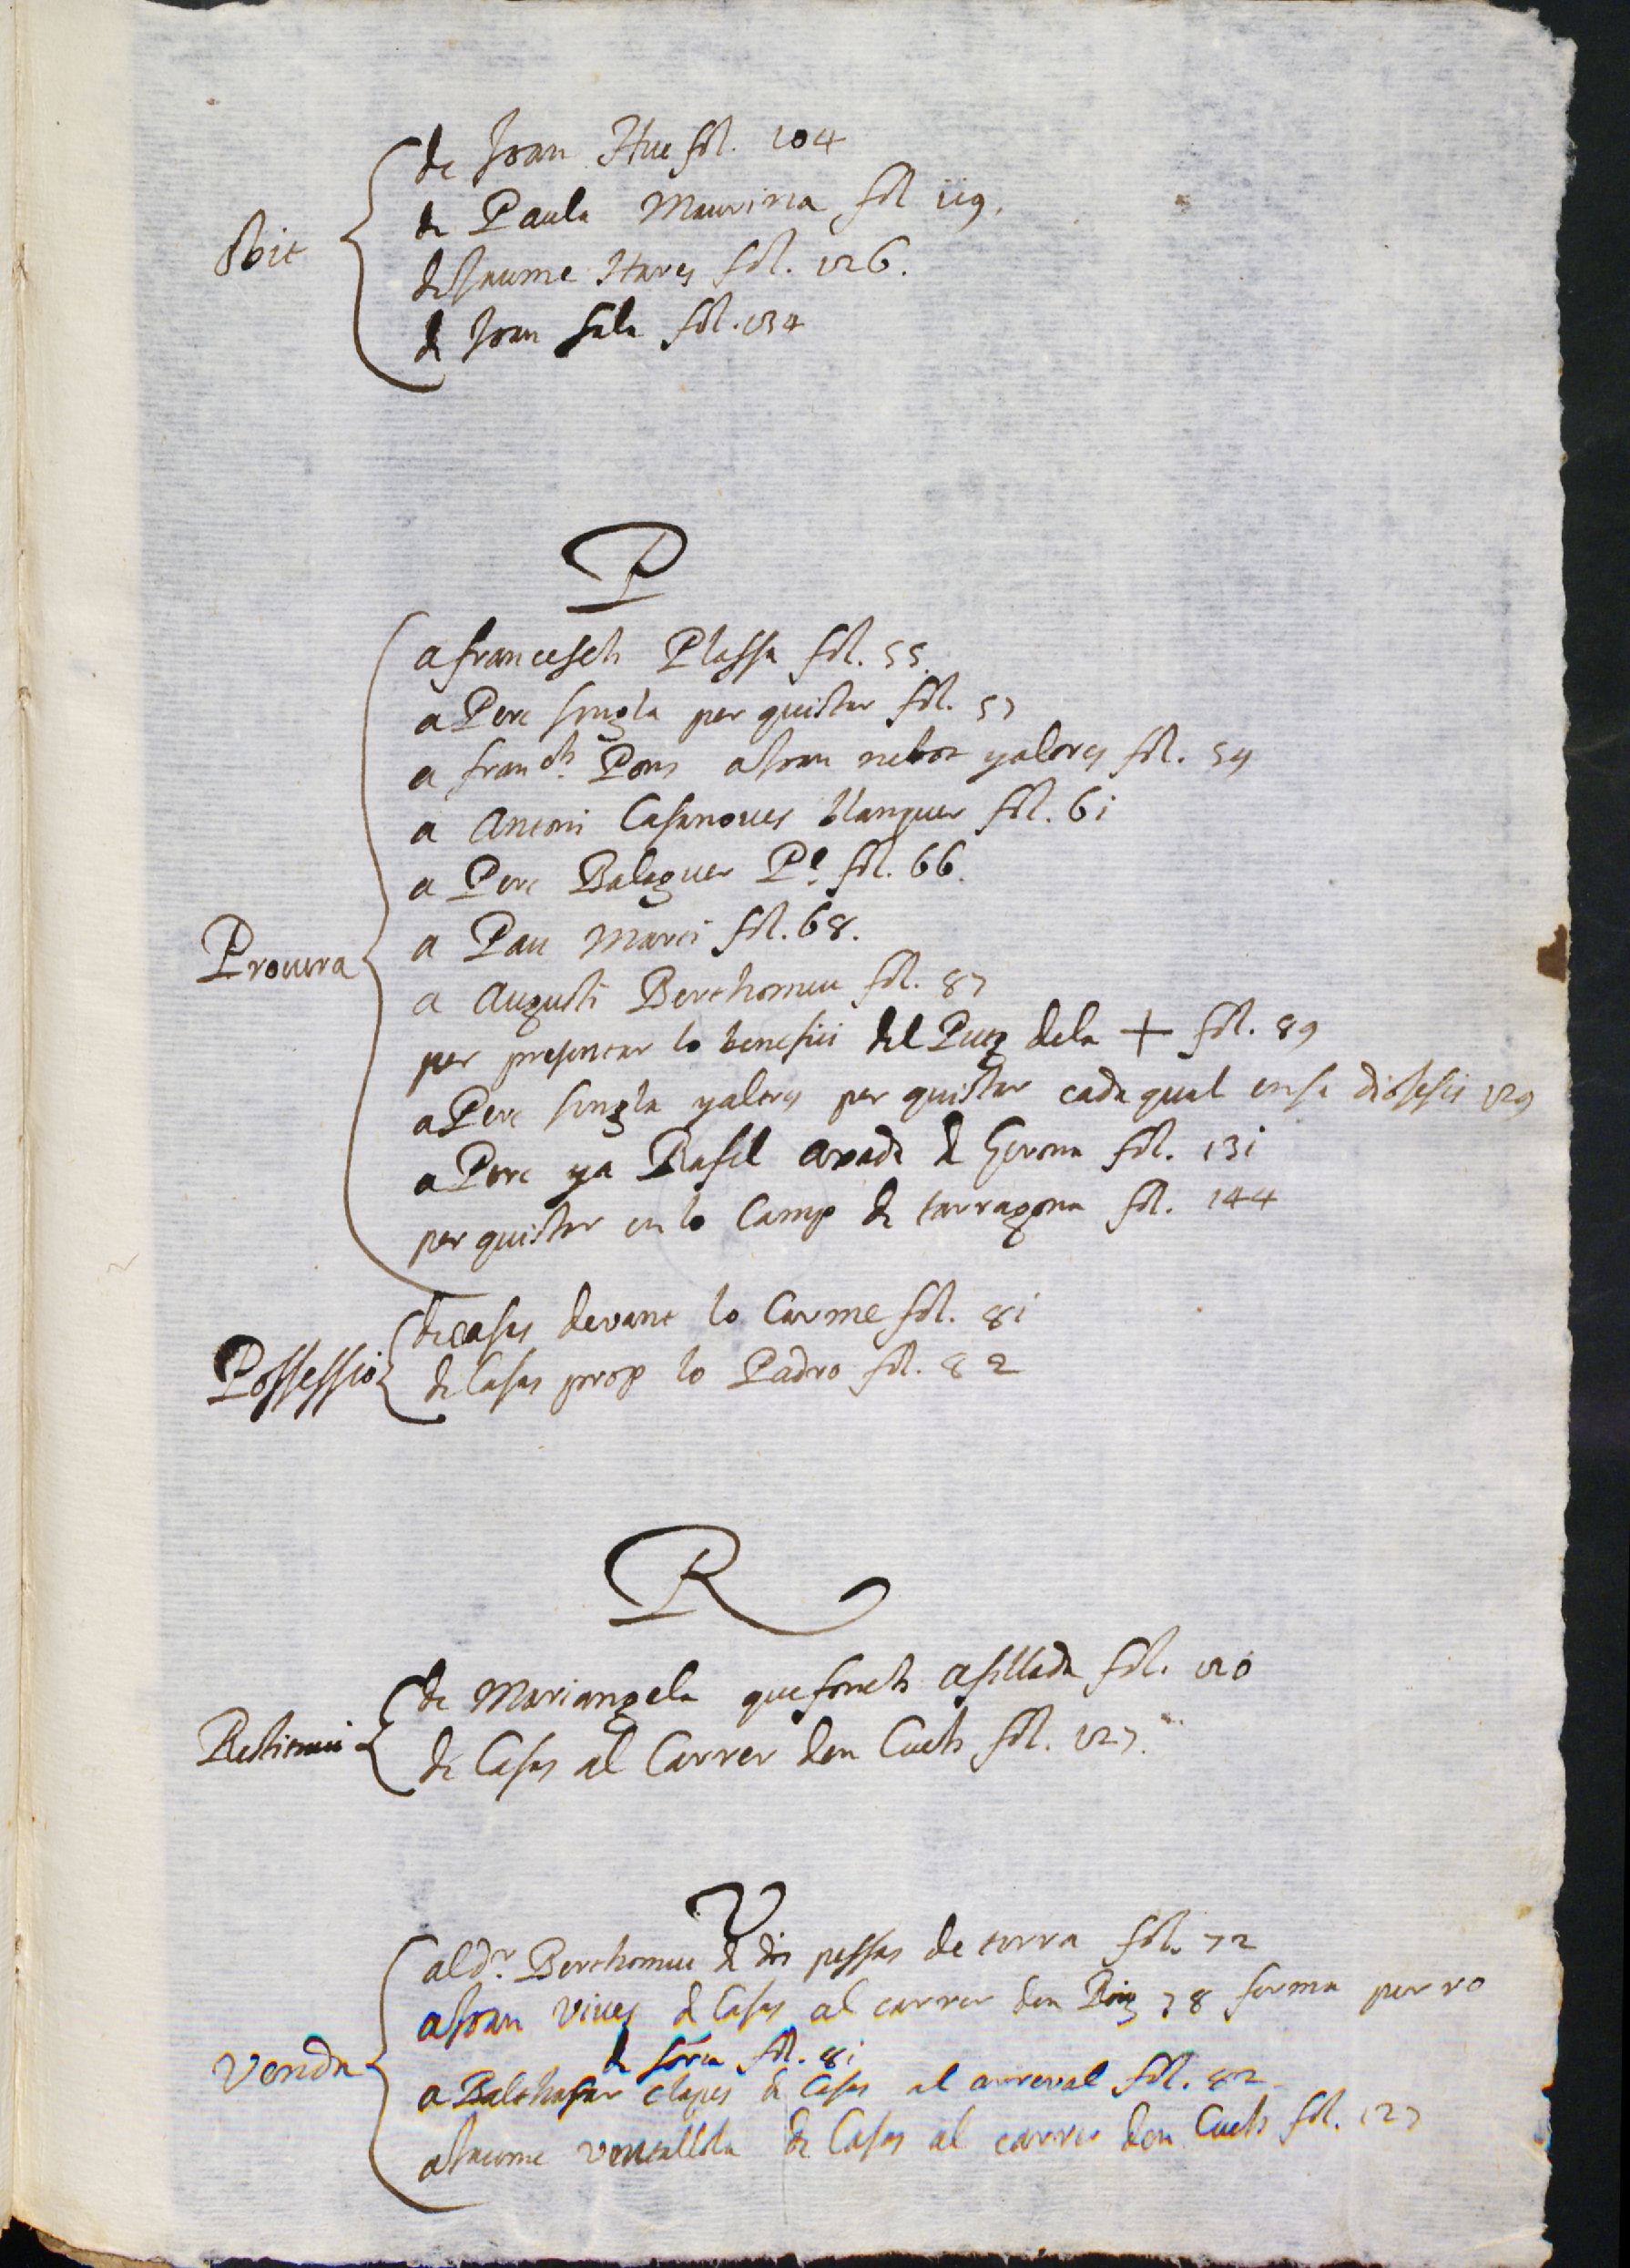 obit
de Joan Hue fol. 104
de Paula Maurina fol 119.
de Jaume Hares fol. 126.
de Joan Sala fol. 134
P
Procura
a francesch Plassa fol. 55.
a Pere Singla per quistar fol. 57
a franch. Pons a Joan nebot y altres fol. 59
a Antoni Casanoves blanquer fol. 61
a Pere Balaguer Pe. fol. 66.
a Pau Marti fol. 68.
a Augusti Berthomeu fol. 87
per presentar lo benefici del Puig dela + fol. 89
a Pere Singla y altres per quistar cada qual en sa diosesis 129
a Pere ya Rafel de Gerona fol. 131
per quistar en lo Camp de tarragona fol. 144
Possessio
de casas devant lo Carme fol. 81
de Casas prop lo Padro fol. 82
R
Restitució
de Mariangela que fonch afillada fol. 120
de Casas al Carrer den Cuch fol. 127.
V
Venda
al dr. Berthomeu de dos pessas de terra fol. 72
a Joan Vives de Casas al carrer den Roig 78 ferma per ro
de fol. 81
a Balthasar Clapes de Casas al arreval fol. 82
a Jaume Ventallola de Casas al carrer den Cuch fol. 127